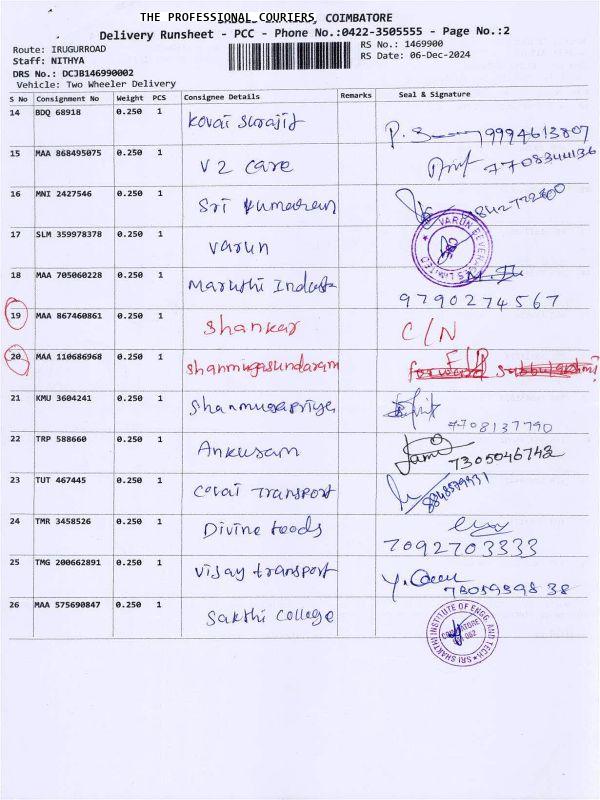 THE PROFESSIONAL COURIERS, COIMBATORE
Delivery Runsheet - PCC - Phone No.:0422-3505555 - Page No.:2
Route: IRUGURROAD
RS No.: 1469900
Staff: NITHYA
RS Date: 06-Dec-2024
DRS No.: DCJB146990002
Vehicle: Two Wheeler Delivery
S No Consignment No Weight PCS Consignee Details Remarks Seal & Signature
14 BDQ 68918 0.250 1 Kovai Surajit 9994613807
15 MAA 868495075 0.250 1 V2 care 7708344136
16 MNI 2427546 0.250 1 Sri Kumaran
17 SLM 359978378 0.250 1 varun VARUN BEVERAGES LIMITED
18 MAA 705060228 0.250 1 Maruthi Indust 9790274567
19 MAA 867460861 0.250 1 Shankar C/N
20 MAA 110686968 0.250 1 shanmugasundaram
21 KMU 3604241 0.250 1 Shanmugapriya 7708137790
22 TRP 588660 0.250 1 Ankusam 7305046742
23 TUT 467445 0.250 1 covai Transport
24 TMR 3458526 0.250 1 Divine foods 7092703333
25 TMG 200662891 0.250 1 Vijay transport
26 MAA 575690847 0.250 1 Sakthi College SRI SHAKTHI INSTITUTE OF ENGG. AND TECH COIMBATORE